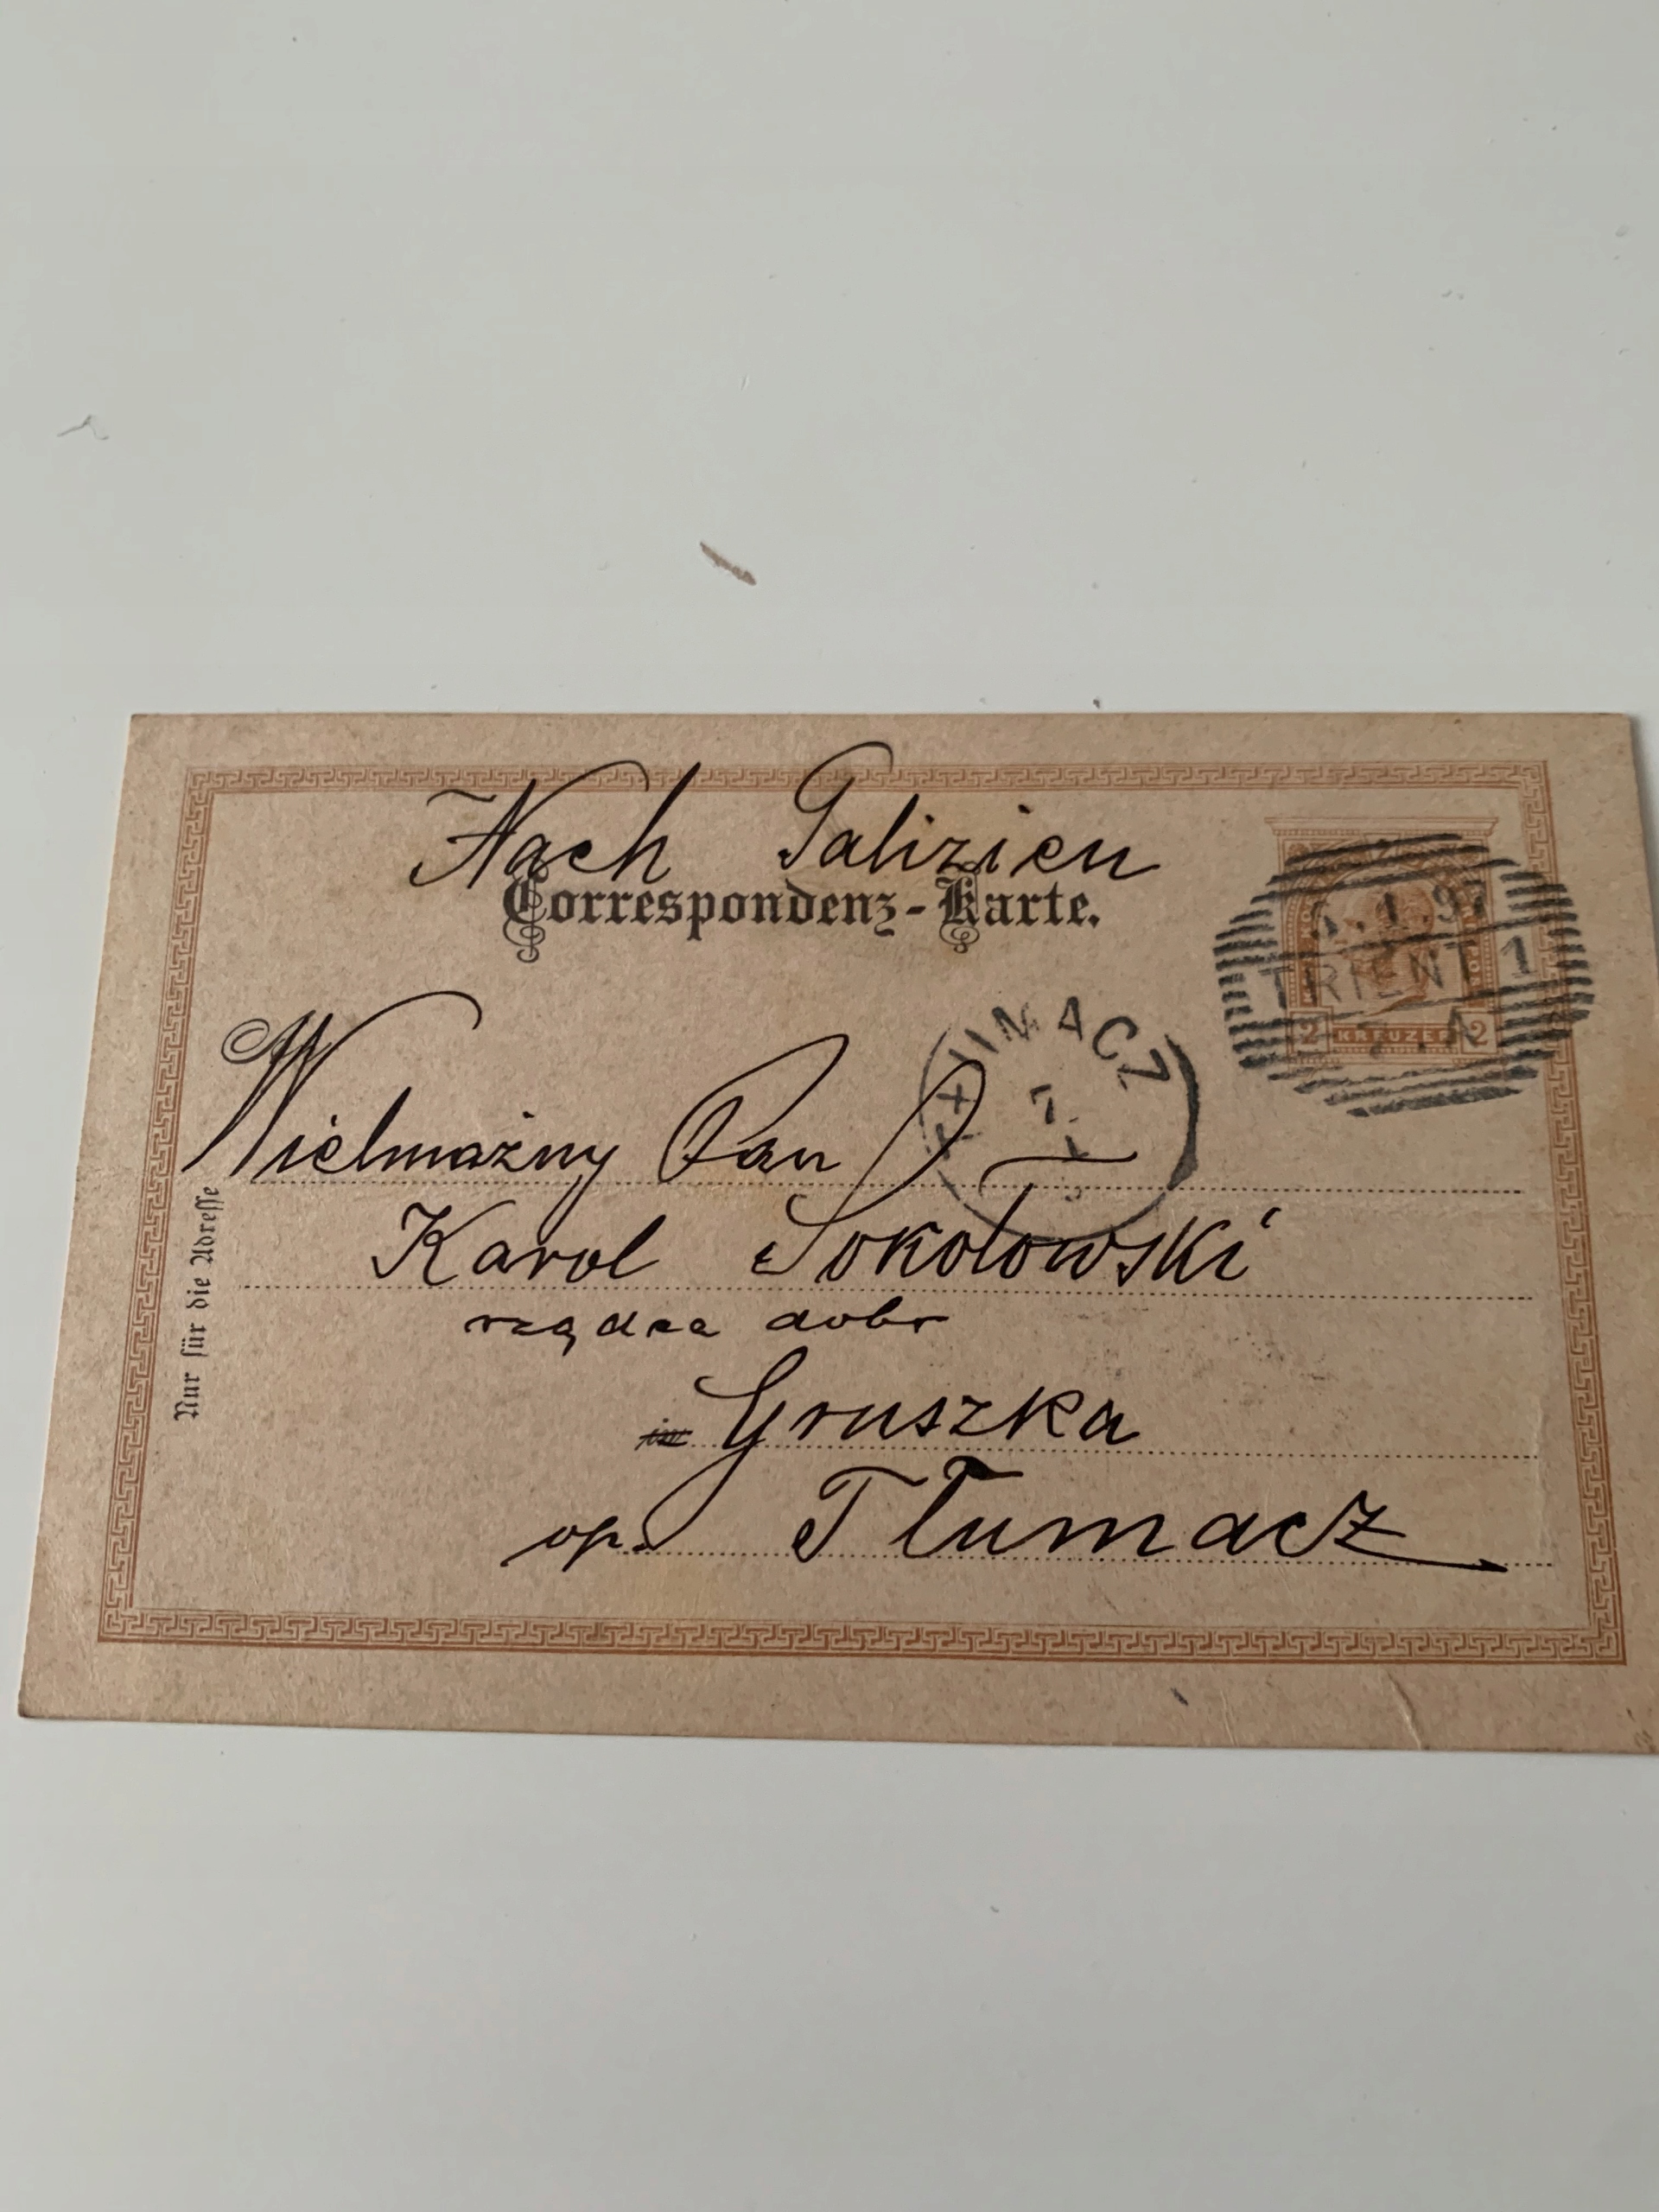 Nach Galizien
Correspondenz-Karte.
.1.97
TRIENT 1
2 KREUZER 2
TŁUMACZ
7
1
Wielmożny Pan
Karol Sokołowski
rządca dobr
Gruszka
op. Tłumacz
Nur für die Adresse